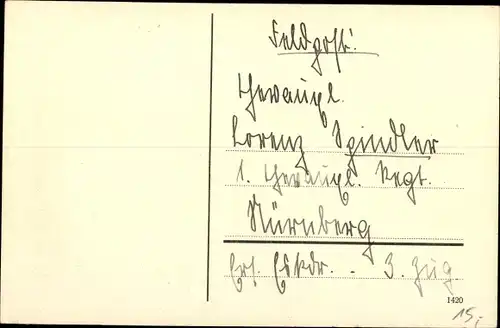 Feldpost!
Chevaupl.
Lorenz Spindler
1. Chevaupl. Regt.
Nürnberg
Ers. Eskdr. - 3. Zug
1420
15,-